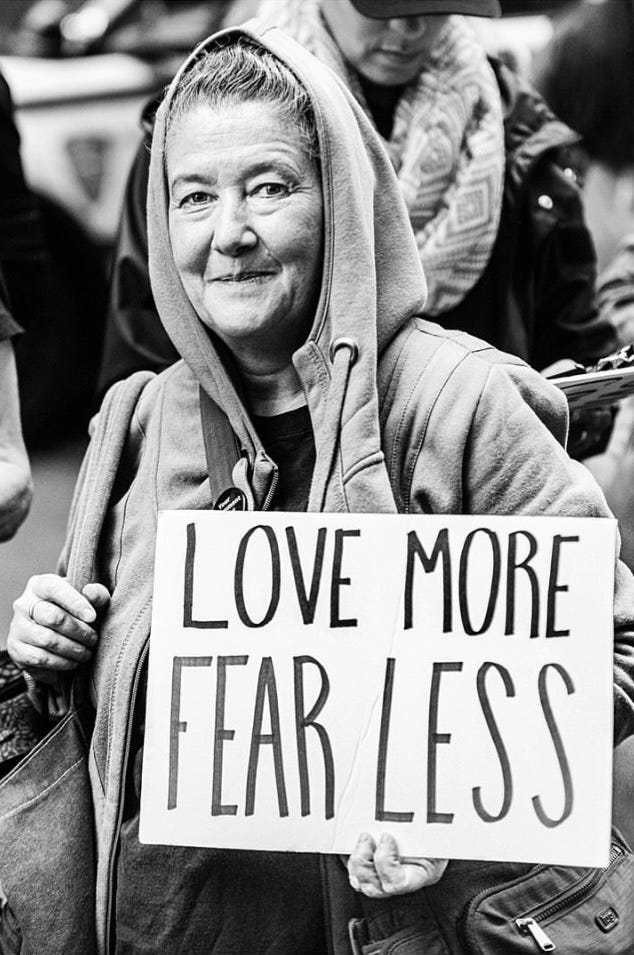 LOVE MORE
FEAR LESS